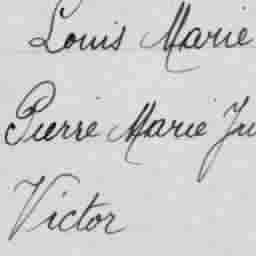 Louis Marie
Pierre Marie Ju
Victor